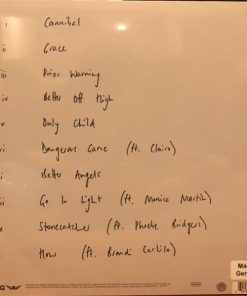 i Cannibal
ii Grace
iii Prior Warning
iv Better Off High
v Only Child
vi Dangerous Game (ft. Clairo)
i Better Angels
iii Go In Light (ft. Monica Martin)
ix Stonecatcher (ft. Phoebe Bridgers)
x How (ft. Brandi Carlile)
Ma
Gar